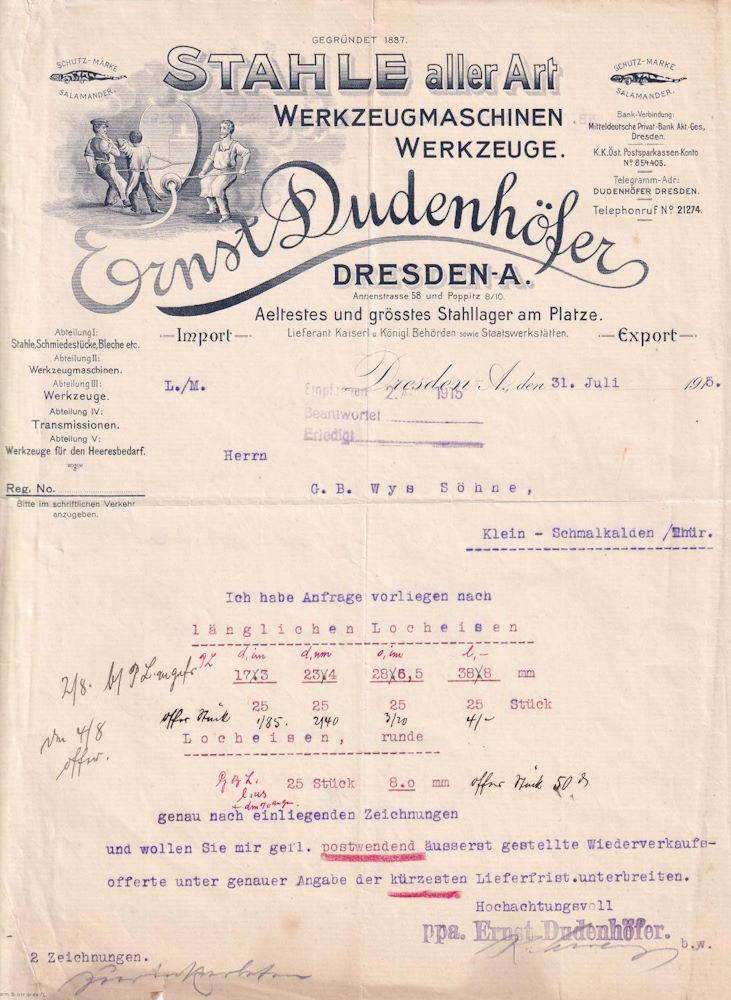 GEGRÜNDET 1887.
SCHUTZ-MARKE
SALAMANDER.
STAHLE aller Art
SCHUTZ-MARKE
SALAMANDER.
WERKZEUGMASCHINEN
WERKZEUGE.
Bank-Verbindung:
Mitteldeutsche Privat-Bank Akt-Ges.,
Dresden.
K.K.Öst. Postsparkassen-Konto
No 854405.
Telegramm-Adr:
DUDENHÖFER DRESDEN.
Telephonruf No 21274.
Ernst Dudenhöfer
DRESDEN-A.
Annenstrasse 58 und Poppitz 8/10.
Aeltestes und grösstes Stahllager am Platze.
Import
Lieferant Kaiserl u. Königl. Behörden sowie Staatswerkstätten.
Export
Abteilung I:
Stahle, Schmiedestücke, Bleche etc.
Abteilung II:
Werkzeugmaschinen.
Abteilung III:
Werkzeuge.
Abteilung IV:
Transmissionen.
Abteilung V:
Werkzeuge für den Heeresbedarf.
Reg. No.
Bitte im schriftlichen Verkehr
anzugeben.
L./M.
Dresden-A., den 31. Juli 1915.
Empfangen 2. 1915
Beantwortet
Erledigt
Herrn
G. B. Wys Söhne,
Klein - Schmalkalden /Thür.
Ich habe Anfrage vorliegen nach
länglichen Locheisen
17x3 23x4 28x6,5 38x8 mm
25 25 25 25 Stück
offer Stück 1/85. 2/40 3/20 4/-
2/8.
den 4/8
offer.
Locheisen, runde
25 Stück 8.0 mm offer Stück 50
genau nach einliegenden Zeichnungen
und wollen Sie mir gefl. postwendend äusserst gestellte Wiederverkaufs-
offerte unter genauer Angabe der kürzesten Lieferfrist.unterbreiten.
Hochachtungsvoll
ppa. Ernst Dudenhöfer.
b.w.
2 Zeichnungen.